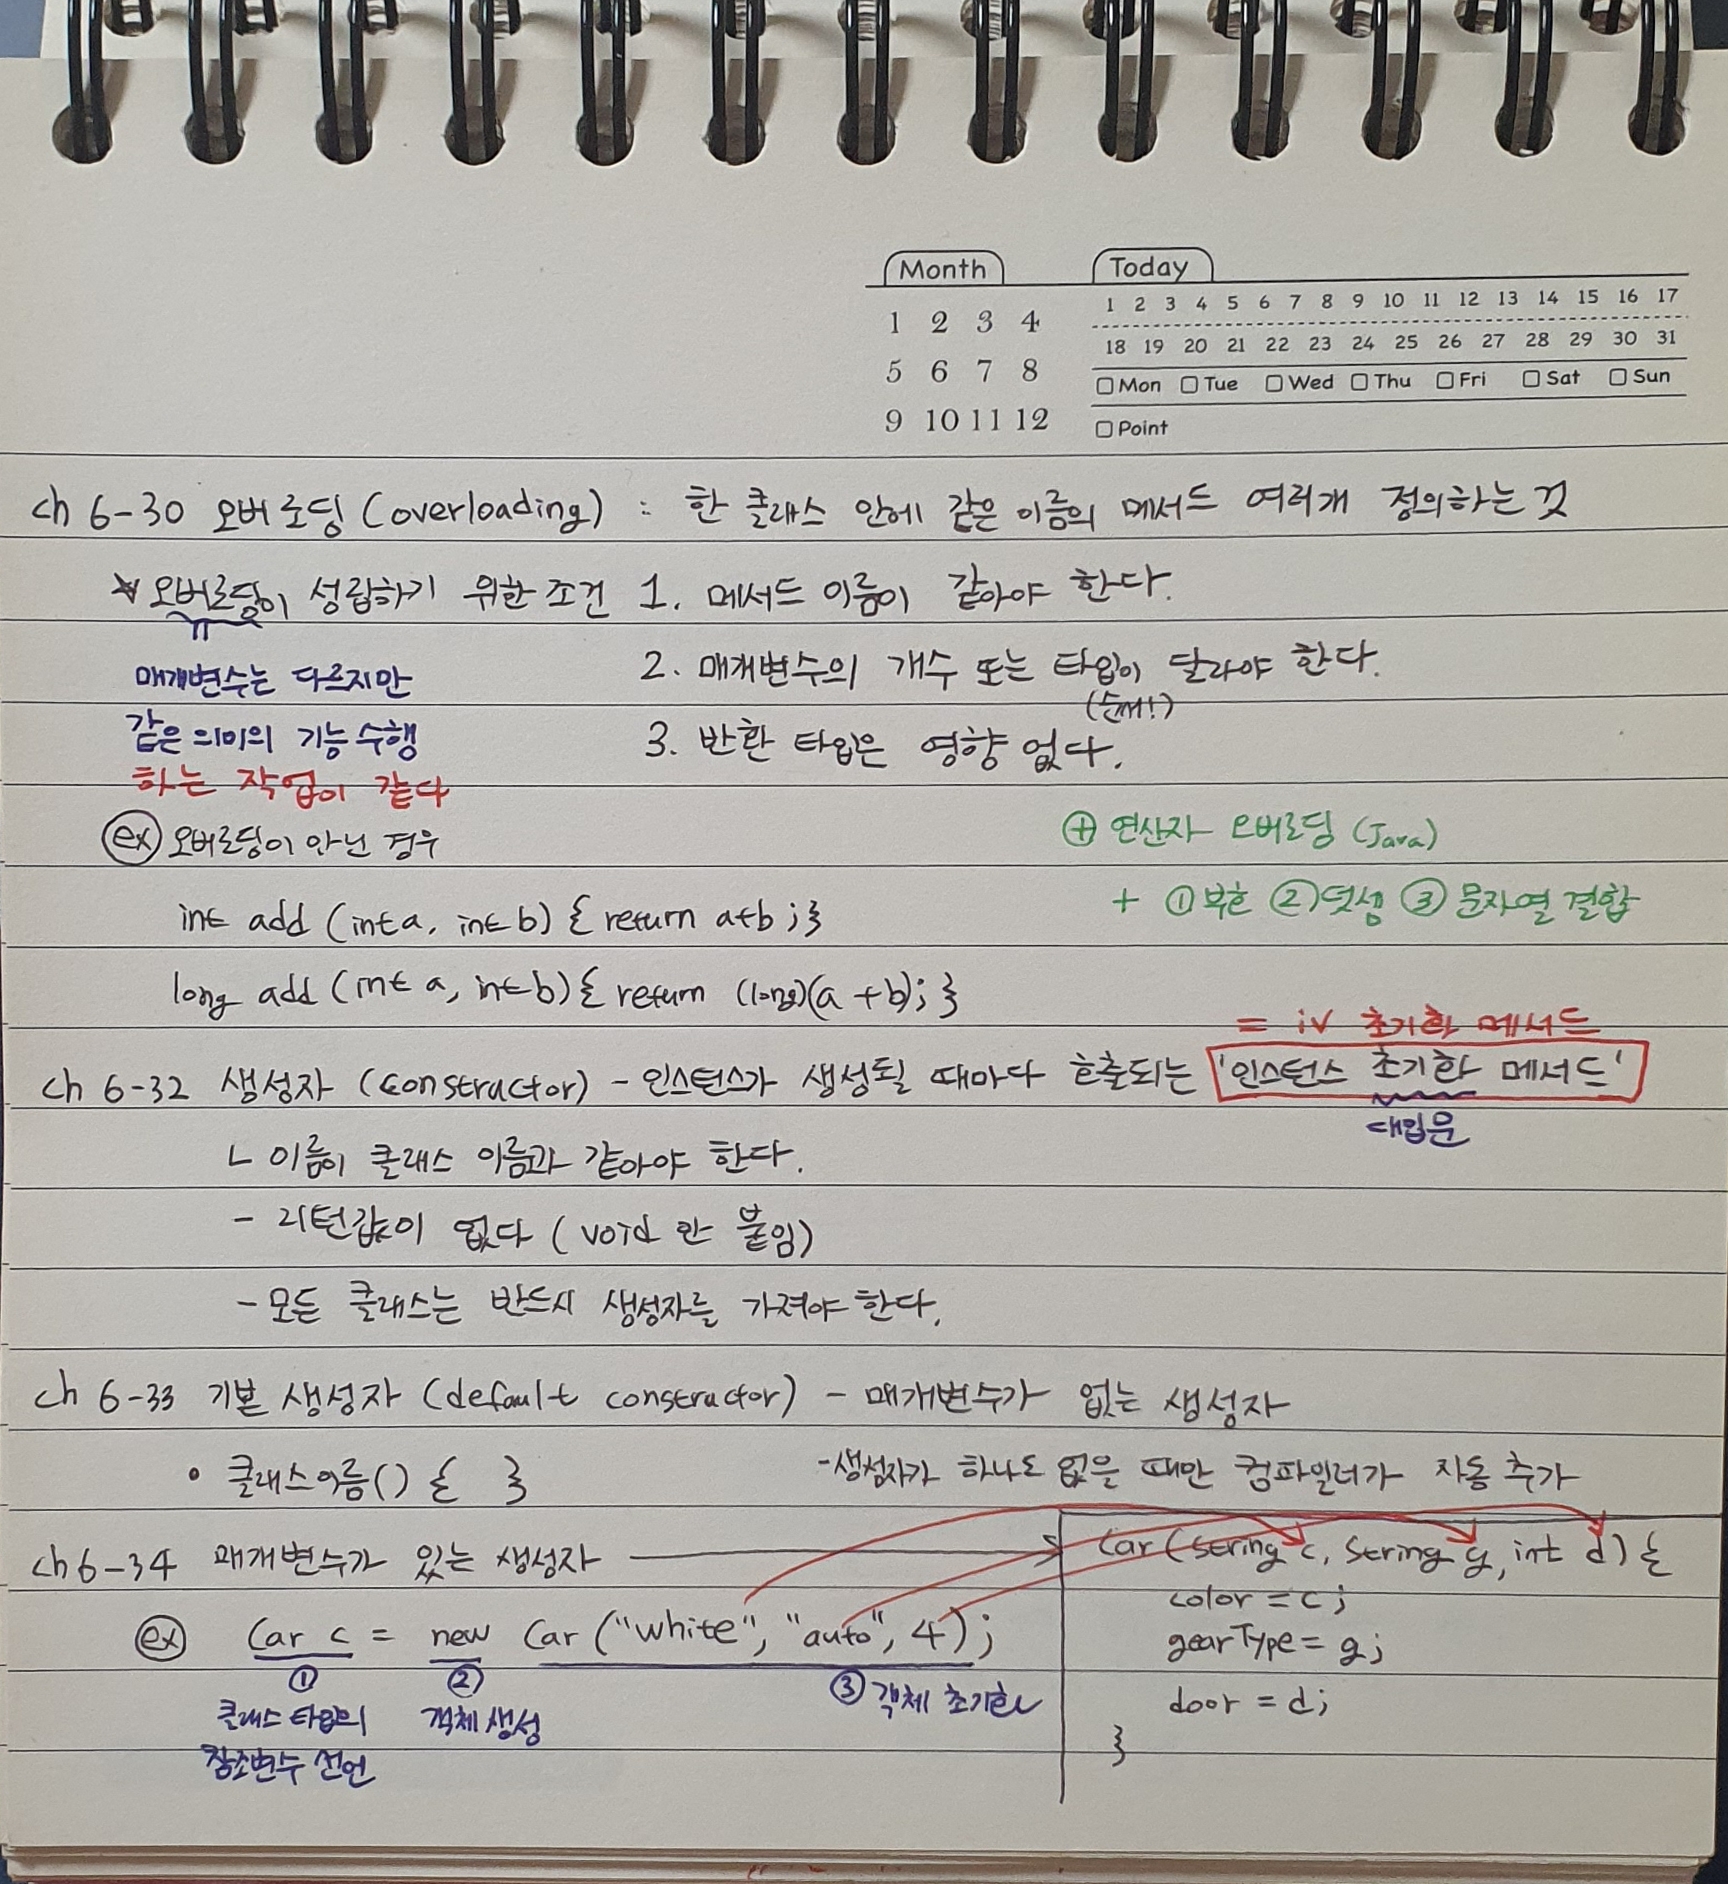 Month
1 2 3 4
5 6 7 8
9 10 11 12
Today
1 2 3 4 5 6 7 8 9 10 11 12 13 14 15 16 17
18 19 20 21 22 23 24 25 26 27 28 29 30 31
Mon Tue Wed Thu Fri Sat Sun
Point
ch 6-30 오버로딩 (overloading) : 한 클래스 안에 같은 이름의 메서드 여러개 정의하는 것
* 오버로딩이 성립하기 위한 조건 1. 메서드 이름이 같아야 한다.
2. 매개변수의 개수 또는 타입이 달라야 한다.
(순서!)
3. 반환 타입은 영향 없다.
매개변수는 다르지만
같은 의미의 기능 수행
하는 작업이 같다
ex 오버로딩이 아닌 경우
int add (int a, int b) { return a+b ; }
long add (int a, int b) { return (long)(a + b); }
⊕ 연산자 오버로딩 (Java)
+ ① 부호 ② 덧셈 ③ 문자열 결합
= iv 초기화 메서드
ch 6-32 생성자 (constructor) - 인스턴스가 생성될 때마다 호출되는 '인스턴스 초기화 메서드'
대입문
ㄴ 이름이 클래스 이름과 같아야 한다.
- 리턴값이 없다 ( void 안 붙임)
- 모든 클래스는 반드시 생성자를 가져야 한다.
ch 6-33 기본 생성자 (default constructor) - 매개변수가 없는 생성자
• 클래스이름() { }
- 생성자가 하나도 없을 때만 컴파일러가 자동 추가
ch 6-34 매개변수가 있는 생성자
ex Car c = new Car ("white", "auto", 4);
① ② ③ 객체 초기화
클래스 타입의 객체 생성
참조변수 선언
Car (String c, String g, int d) {
color = c;
gearType = g;
door = d;
}